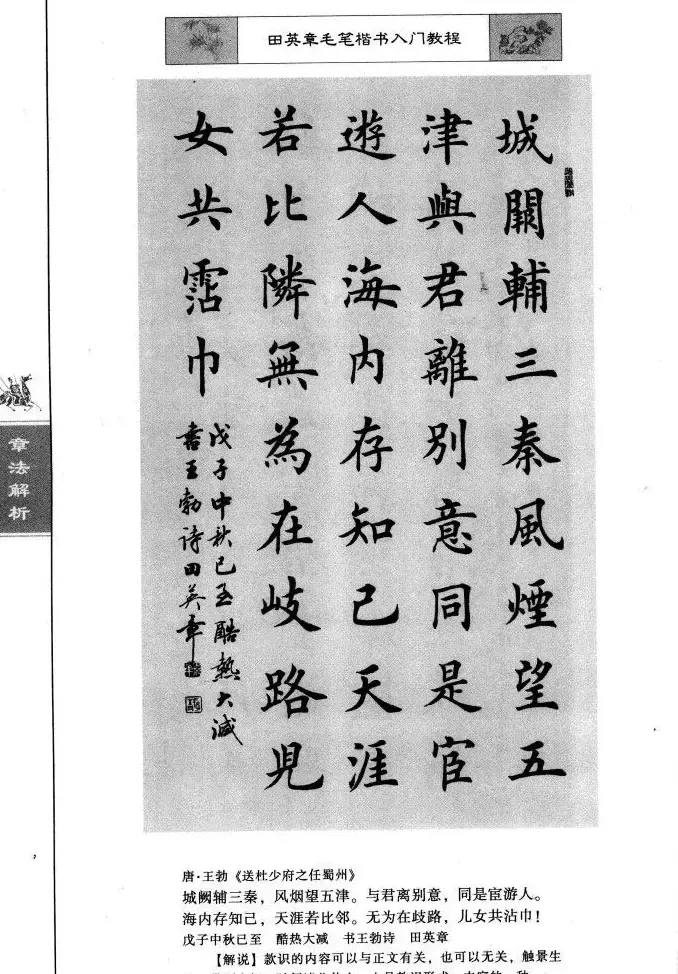 田英章毛笔楷书入门教程
城闕輔三秦風煙望五
津與君離別意同是宦
遊人海内存知己天涯
若比隣無為在岐路兒
女共霑巾
戊子中秋已至酷熱大減
書王勃詩田英章
章法解析
唐·王勃《送杜少府之任蜀州》
城阙辅三秦，风烟望五津。与君离别意，同是宦游人。
海内存知己，天涯若比邻。无为在歧路，儿女共沾巾！
戊子中秋已至 酷热大减 书王勃诗 田英章
【解说】款识的内容可以与正文有关，也可以无关，触景生